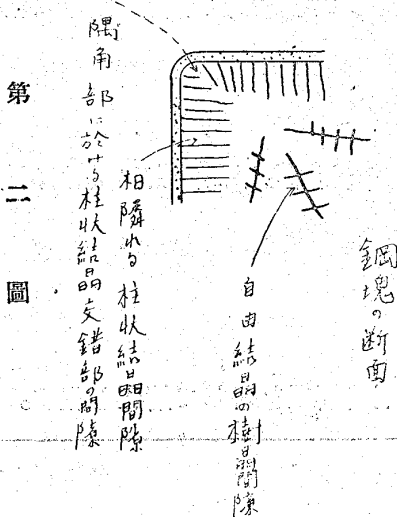 鋼塊の断面
自由結晶の樹間隙
相隣れる柱状結晶間隙
隅角部に於ける柱状結晶交錯部の間隙
第二圖